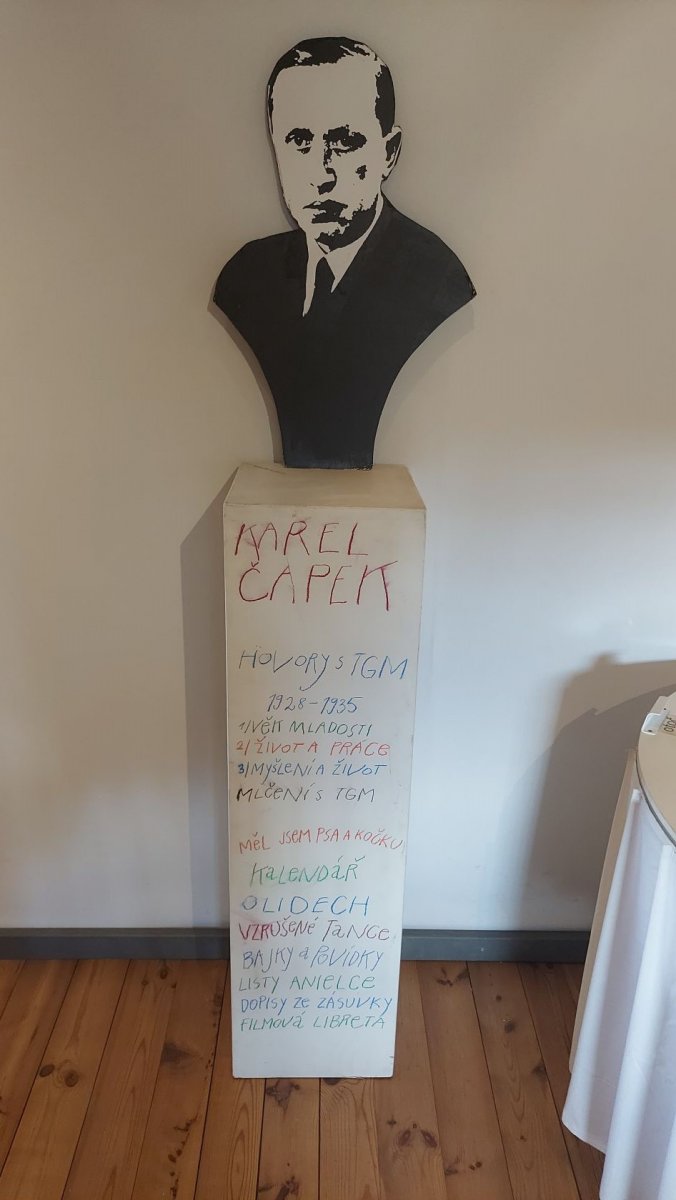 KAREL
ČAPEK
HOVORY S TGM
1928-1935
1/VĚK MLADOSTI
2/ŽIVOT A PRÁCE
3/MYŠLENÍ A ŽIVOT
MLČENÍ S TGM
MĚL JSEM PSA A KOČKU
KaLENDÁŘ
O LIDECH
VZRUŠENÉ TaNCE
BAJKY a POVÍDKY
LISTY ANIELCE
DOPISY ZE ZÁSUVKY
FILMOVá LIBRETA